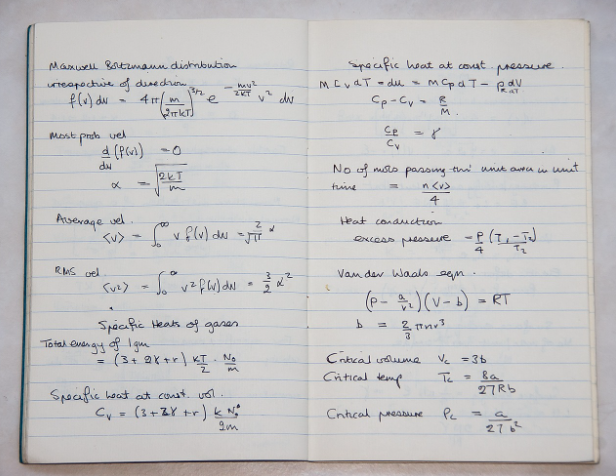 Maxwell Boltzmann distribution
irrespective of direction
f(v) dv = 4π (m/2πkT)^3/2 e^-mv²/2kT v² dv
Most prob vel
d/dv (f(v)) = 0
α = √(2kT/m)
Average vel.
<v> = ∫₀^∞ v f(v) dv = 2/√π α
RMS vel
<v²> = ∫₀^∞ v² f(v) dv = 3/2 α²
Specific Heats of gases
Total energy of 1gm
= (3 + 2γ + r) kT/2 . N₀/m
Specific heat at const. vol.
Cv = (3 + 2γ + r) k N₀/2m
Specific heat at const. pressure.
M Cv dT = du = M Cp dT - p dV
Cp - Cv = R/M.
Cp/Cv = γ
No of mols passing thro' unit area in unit
time = n<v>/4
Heat conduction
excess pressure = P/4 (T₁ - T₂)/T₂
Van der Waals eqn.
(P - a/v²)(V - b) = RT
b = 2/3 π n r³
Critical volume Vc = 3b
Critical temp Tc = 8a/27Rb
Critical pressure Pc = a/27b²